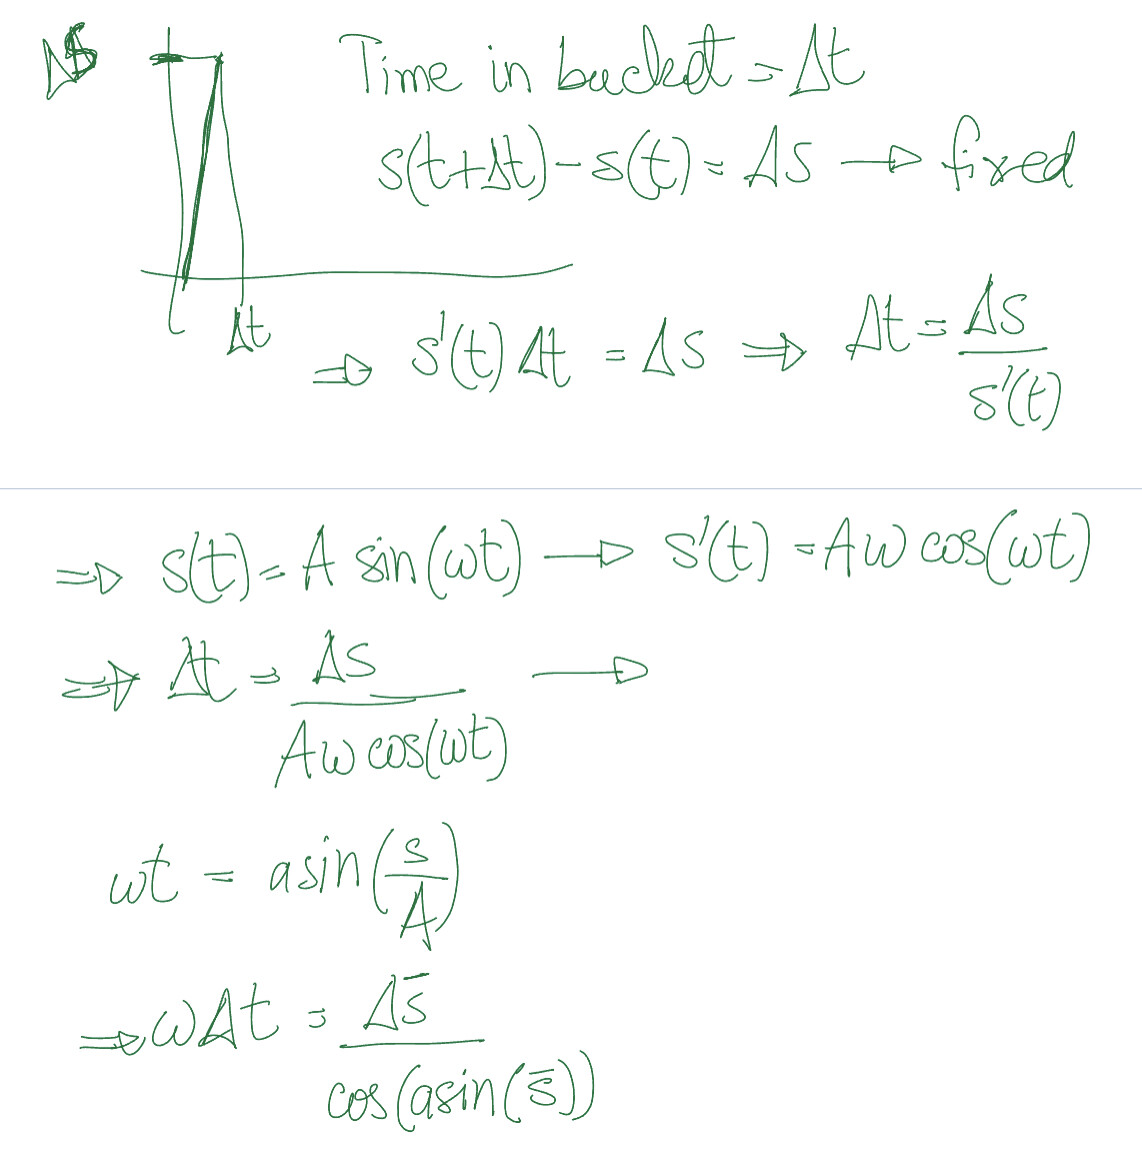 Δs
Time in bucket = Δt
s(t+Δt) - s(t) = Δs → fixed
Δt
⇒ s'(t) Δt = Δs ⇒ Δt = Δs / s'(t)
⇒ s(t) = A sin(ωt) → s'(t) = Aω cos(ωt)
⇒ Δt = Δs / Aω cos(ωt) →
ωt = asin(s/A)
⇒ ωΔt = Δs̄ / cos(asin(s̄))